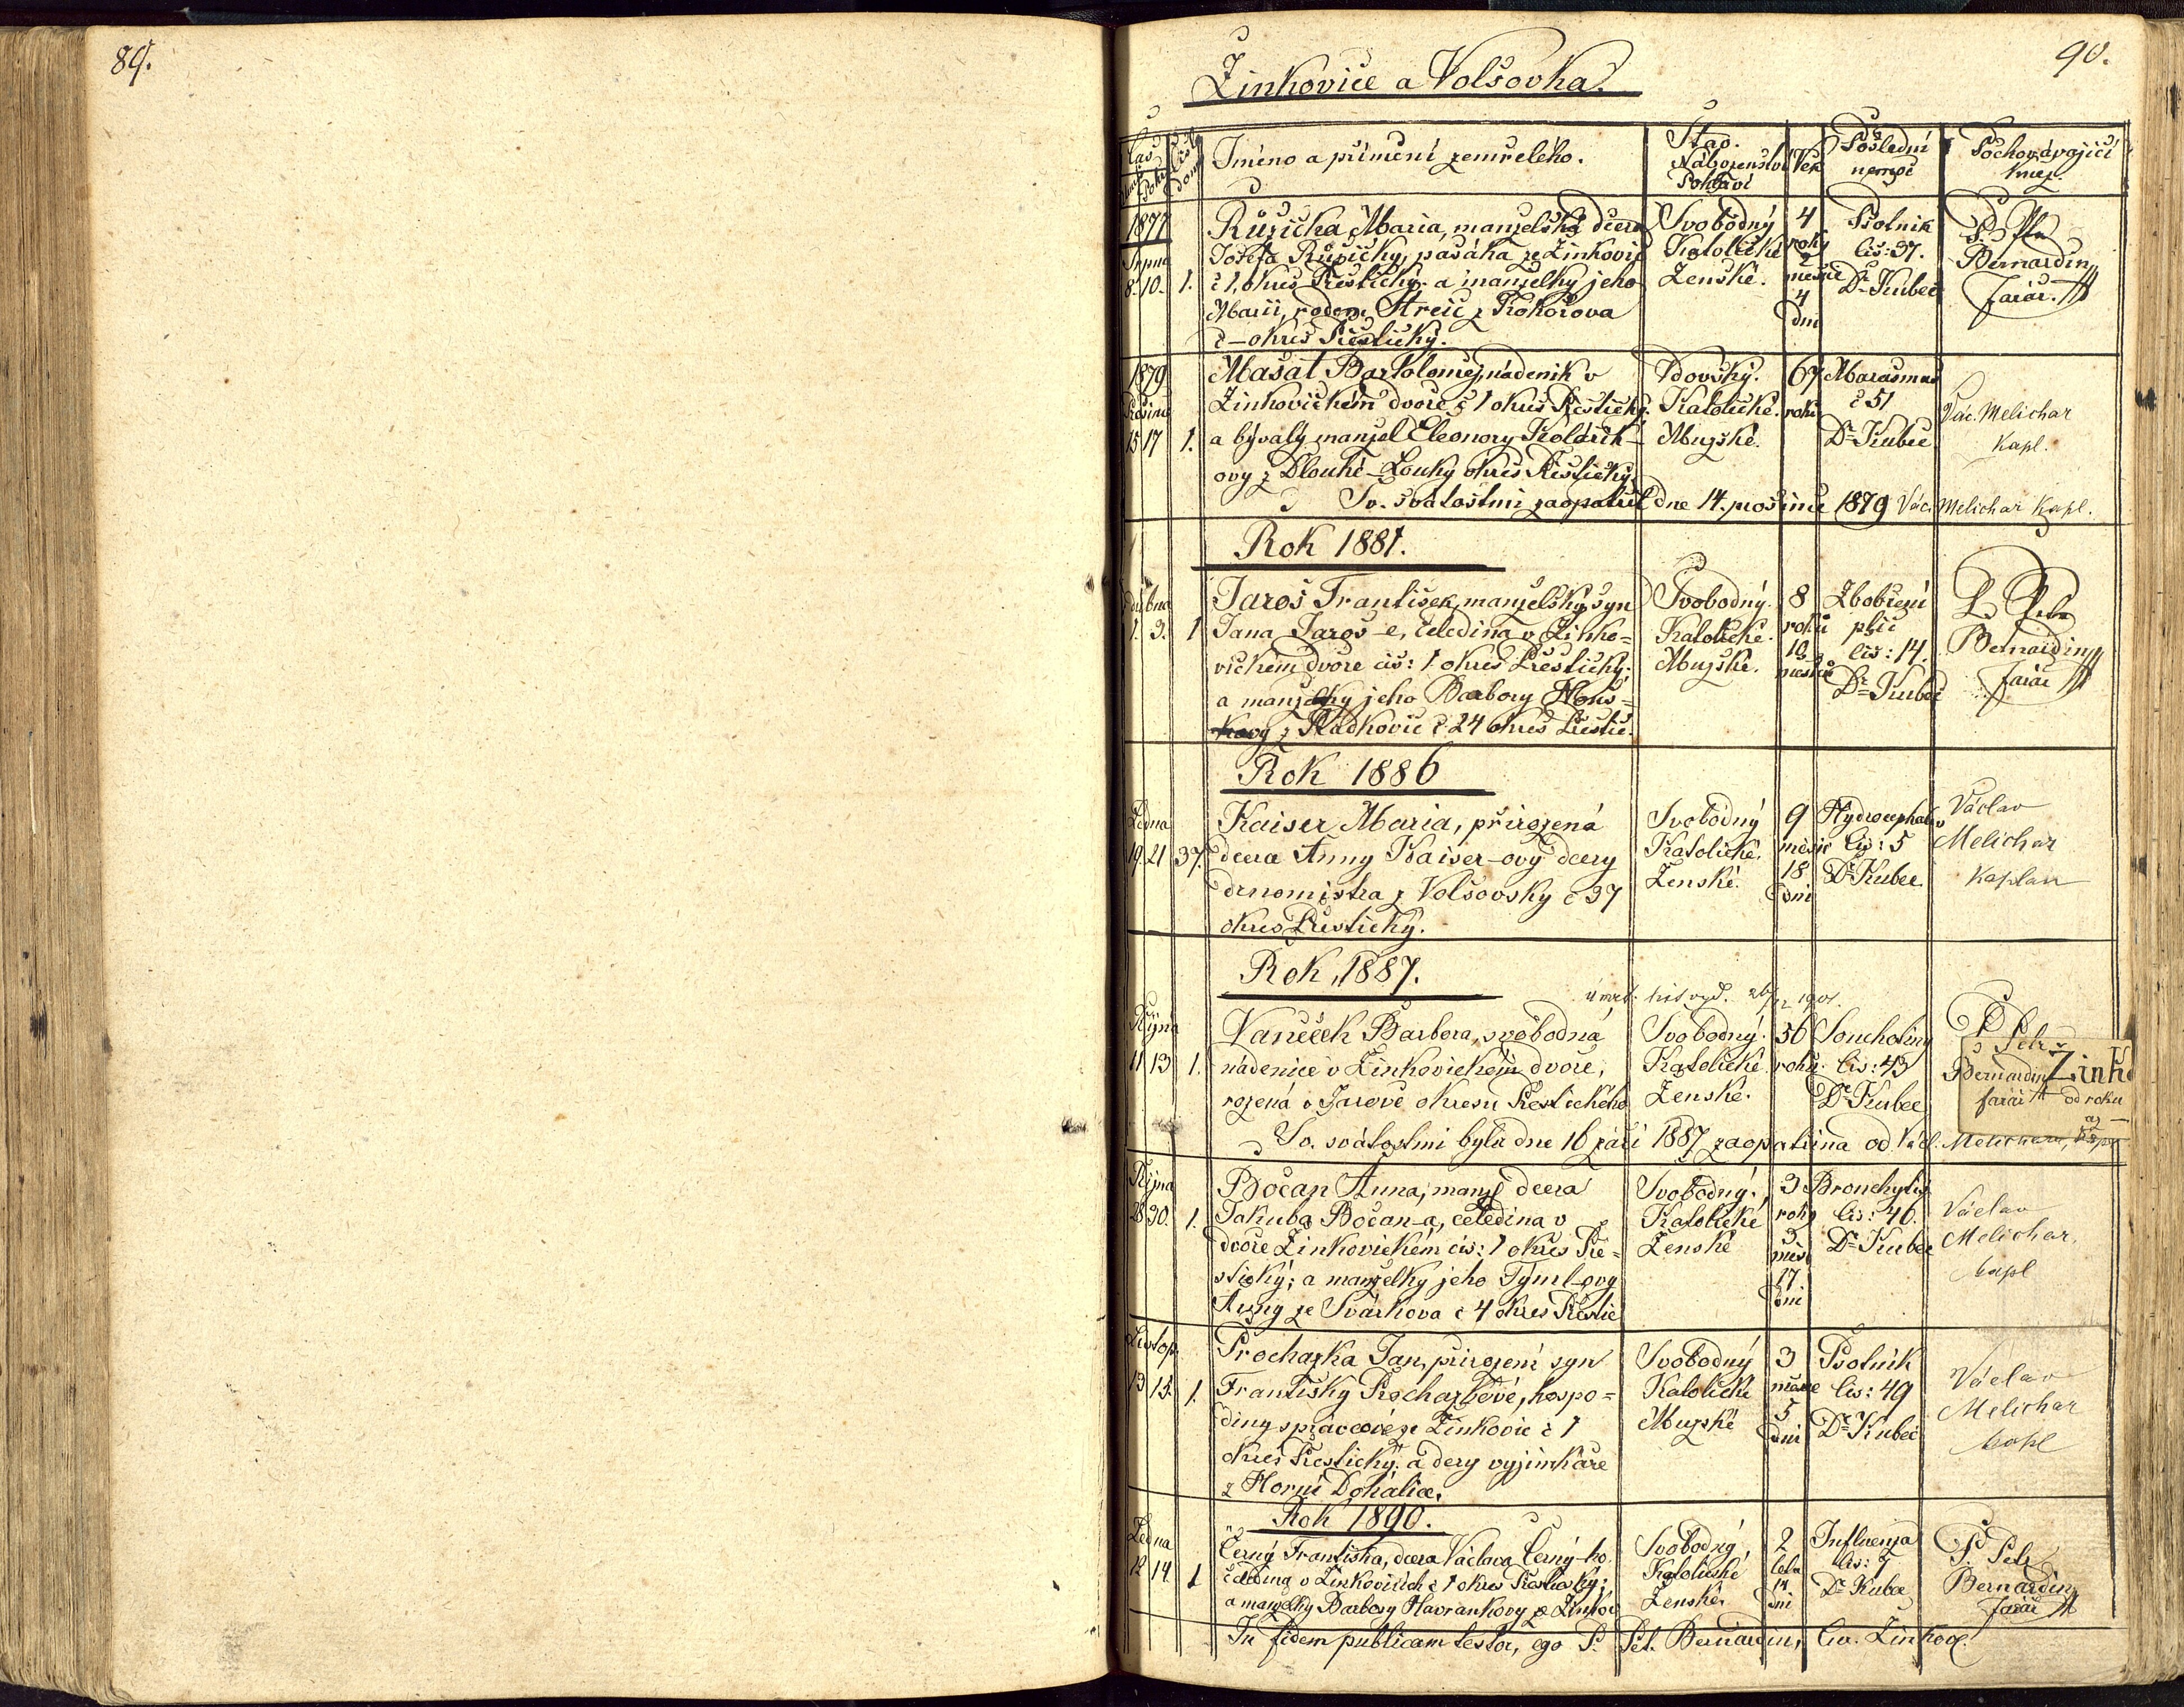 89.
90.
Žinkovice a Volšovka.
Čas
Úmrtí
Pohřbu
Číslo domu
Jméno a příměni zemřelého.
Stav.
Náboženství
Pohlaví
Věk
Poslední
nemoc
Pochovávající
kněz.
1877
Srpna
8. 10. 1.
Růžička Maria, manželská dcera
Josefa Růžičky, pasáka ze Žinkovic
č 1, okres Přestický; a manželky jeho
Marii, rodem Streič z Prokořova
č – okres Přestický.
Svobodný
Katolické
Ženské.
4
roky
2
měsíce
4
dni
Psotnik
čís: 37.
Dr. Kubec
P. Petr
Bernardin
farář.
1879
Prosince
15 17 1.
Mašat Bartoloměj, nádenik v
Žinkovickém dvoře č 1 okres Přestický.
a bývalý manžel Eleonory Kolářik-
ovy z Dlouhé-Louky okres Přestický.
Sv. svátostmi zaopatřil dne 14. prosince 1879 Vác. Melichar Kapl.
Vdovský.
Katolické.
Mužské.
67
roků
Marasmus
č 51
Dr. Kubec
Vác. Melichar
Kapl.
Rok 1881.
dubna
1. 3. 1
Jaroš František, manželský syn
Jana Jaroš-e, čeledína v Žinko=
vickém dvoře čís: 1 okres Přestický;
a manželky jeho Barbory
z Radkovic č. 24 okres Přestic.
Svobodný.
Katolické.
Mužské.
8
roků
10
měsíců
Zbobření
plic
čis: 14.
Dr. Kubec
P. Petr
Bernardin
farář
Rok 1886
Ledna
19 21 37.
Kaiser Maria, přirozená
dcera Anny Kaiser-ovy dcery
drnomistra z Volšovsky č 37
okres Přestický.
Svobodný
Katolické.
Ženské.
9
měsíc
18
dni
Hydrocephalus
čis: 5
Dr. Kubec
Václav
Melichar
Kaplan
Rok, 1887.
úmrt. list vyd. 26/12 1901.
Října
11 13 1.
Vaněček Barbora, svobodná
nádenice v Žinkovickém dvoře,
rozená v Jarově okresu Přestického
Sv. svátostmi byla dne 16 září 1887 zaopatřena od Václ. Melichara,
Svobodný.
Katolické.
Ženské.
56
roků.
Souchotiny
čis: 43
Dr. Kubec
P. Petr
Bernardin
farář
Žink
od roku
až
Října
28 30. 1.
Bočan Anna, manž dcera
Jakuba Bočan-a, čeledína v
dvoře Žinkovickém čis: 1 okres Pře=
stický; a manželky jeho Týml-ovy
Anny ze Svárkova č 4 okres Přestic
Svobodný.
Katolické
Ženské
3
roky
3
měs.
17.
dni
Bronchytis
čis: 46.
Dr. Kubec
Václav
Melichar.
kapl
Listop.
13 15. 1.
Prochazka Jan, přirození syn
Františky Prochazkové, hospo=
diny správcově ze Žinkovic č 1
okres Přestický; a dcery vyjimkáře
z Horní Dohalic.
Svobodný
Katolické
Mužské
3
měsice
5
dni
Psotník
čis: 49
Dr. Kubec
Václav
Melichar
kapl
Rok 1890.
Ledna
12 14. 1
Černý Františka, dcera Václava Černý-ho.
čeledína v Žinkovicích č 1 okres Přestický;
a manželky Barbory Havrankovy ze Žinkov
Svobodný,
Katolické
Ženské.
2
leta
14
dni
Influenza
čis: 7
Dr. Kubec
P. Petr
Bernardin
farář
In fidem publicam testor, ego P. Pet. Bernardin, Cur. Zinkov.